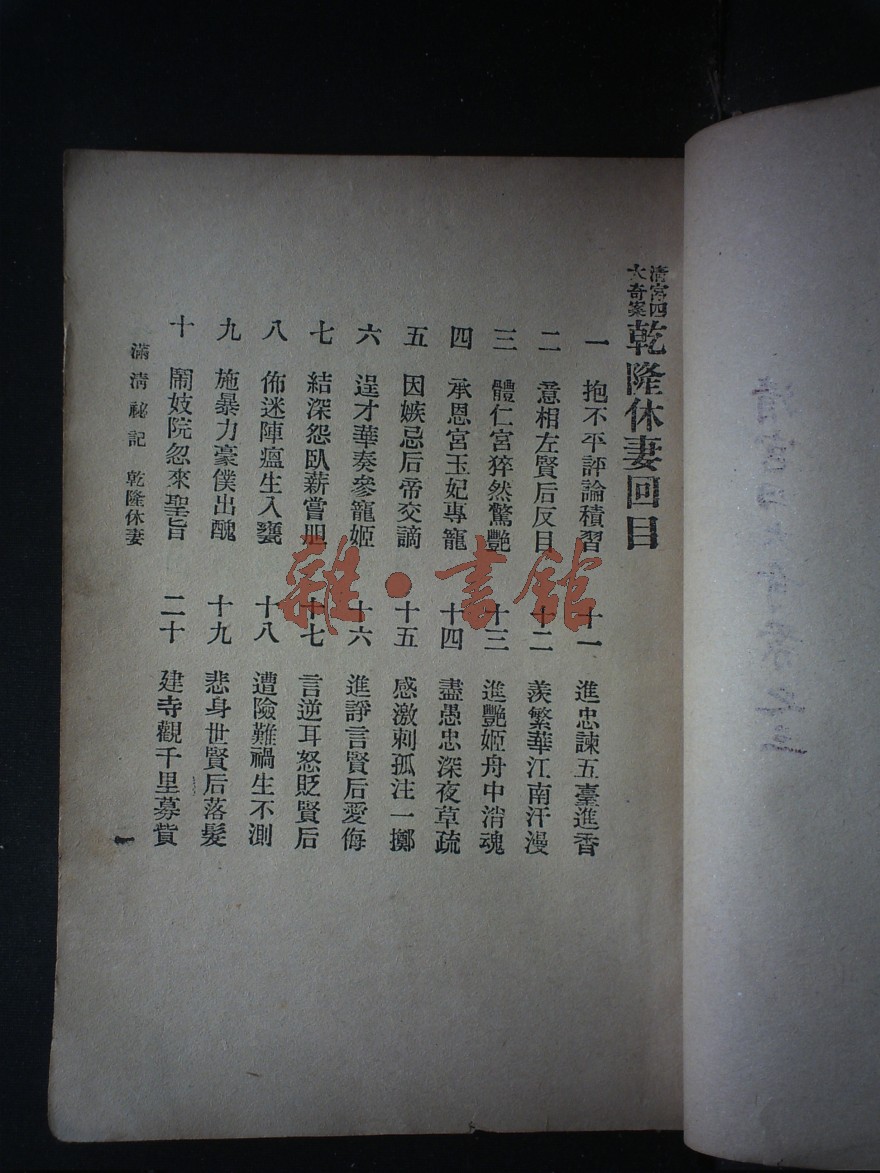 清宮四大奇案 乾隆休妻回目
一 抱不平評論積習
二 意相左賢后反目
三 體仁宮猝然驚艷
四 承恩宮玉妃專寵
五 因嫉忌后帝交謫
六 逞才華奏參寵姬
七 結深怨臥薪嘗胆
八 佈迷陣瘟生入甕
九 施暴力豪僕出醜
十 鬧妓院忽來聖旨
十一 進忠諫五臺進香
十二 羨繁華江南汗漫
十三 進艷姬舟中消魂
十四 盡愚忠深夜草疏
十五 感激刺孤注一擲
十六 進諍言賢后受侮
十七 言逆耳怒貶賢后
十八 遭險難禍生不測
十九 悲身世賢后落髮
二十 建寺觀千里募貲
滿清祕記 乾隆休妻
一
雜·書館